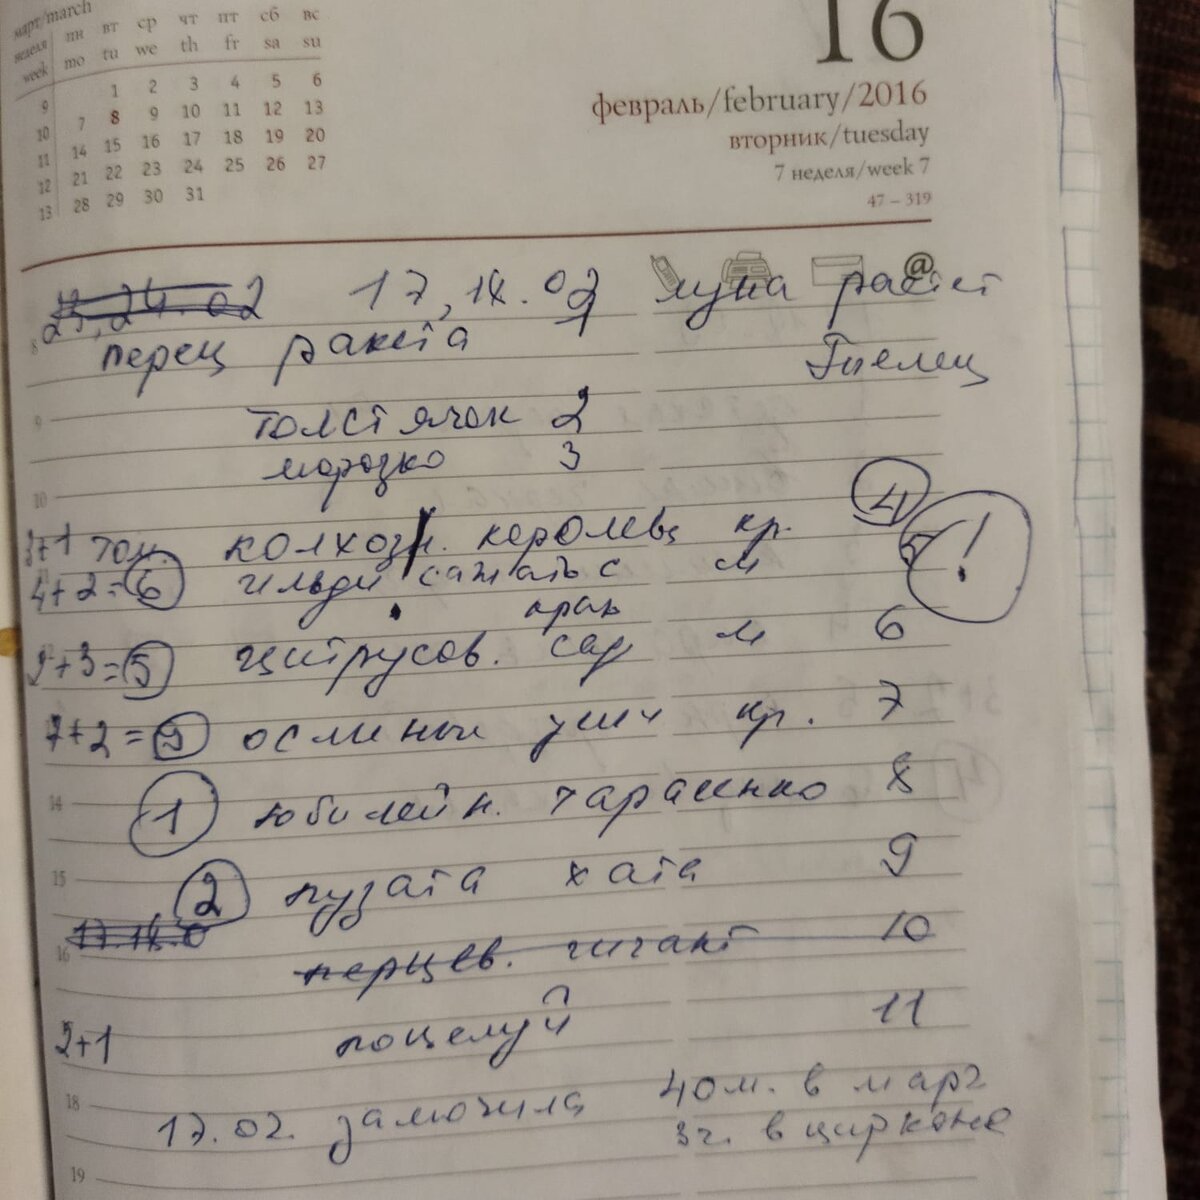 март/march
неделя week пн mo вт tu ср we чт th пт fr сб sa вс su
9 1 2 3 4 5 6
10 7 8 9 10 11 12 13
11 14 15 16 17 18 19 20
12 21 22 23 24 25 26 27
13 28 29 30 31
16
февраль/february/2016
вторник/tuesday
7 неделя/week 7
47 – 319
23,24.02 17,18.02 луна растет
8 перец ракета 1 Стрелец
9 толстячок 2
морозко 3
10
3+1 том. колхозн. королевы кр. 4
4+2=6 гильди сажать с м 5 !
краю
2+3=5 цитрусов. сад м 6
7+2=9 ослиные уши кр. 7
14 1 юбилейн. тарасенко 8
15 2 пузата хата 9
17.18.0
16 перцев. гигант 10
2+1 поцелуй 11
18 17.02. замочила 40м. в марг
3ч. в цирконе
19